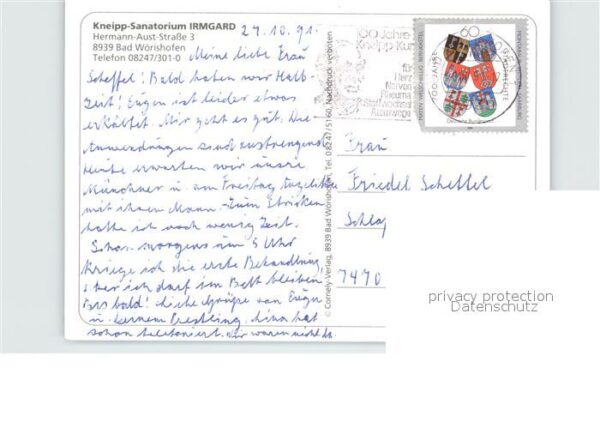 Kneipp-Sanatorium IRMGARD
Hermann-Aust-Straße 3
8939 Bad Wörishofen
Telefon 08247/301-0
29.10.91.
Meine liebe Frau
Scheffel! Bald haben wir Halb-
zeit! Eugen ist leider etwas
erkältet. Mir geht es gut. Die
Anwendungen sind anstrengend.
Heute erwarten wir unsere
Münchner u. am Freitag
mit ihrem Mann. Zum Stricken
hatte ich noch wenig Zeit.
Schon morgens um 5 Uhr
kriege ich die erste Behandlung,
aber ich darf im Bett bleiben.
Bis bald! Liebe Grüße von Eugen
u.
schon telefoniert. Wir waren nicht da.
© Cornely-Verlag, 8939 Bad Wörishofen, Tel. 08247/5160, Nachdruck verboten
100 Jahre
Kneipp Kur
für
Herz
Nerven
Rheuma
Stoffwechsel
Atemwege
60
700 JAHRE
Deutsche Bundespost
Frau
Friedel Scheffel
7470
privacy protection
Datenschutz